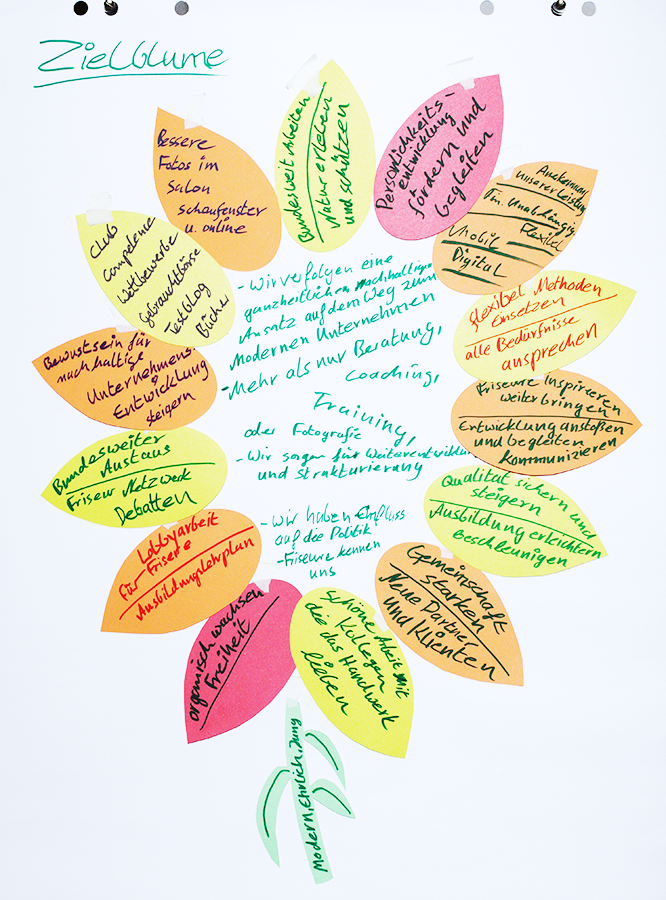 Zielblume
Bessere
Fotos im
Salon
Schaufenster
u. online
Bundesweit Arbeiten
Natur erleben
und schützen
Persönlichkeits-
entwicklung
fördern und
begleiten
Anerkennung
unserer Leistung
Fin. Unabhängig
Mobil Flexibel
Digital
flexibel Methoden
einsetzen
alle Bedürfnisse
ansprechen
Friseure inspirieren
weiterbringen
Entwicklung anstoßen
und begleiten
Kommunizieren
Qualität sichern und
steigern
Ausbildung erleichtern
Beschleunigen
Gemeinschaft
stärken
Neue Partner
und Klienten
Schöne Arbeit mit
Kollegen
die das Handwerk
lieben
organisch wachsen
Freiheit
Lobbyarbeit
für Friseure
Ausbildungslehrplan
Bundesweiter
Austaus
Friseur Netzwerk
Debatten
Bewustsein für
nachhaltige
Unternehmens-
Entwicklung
steigern
Club
Competence
Wettbewerbe
Gebrauchtbörse
Testblog
Bücher
- Wir verfolgen eine
ganzheitlichen nachhaltigen
Ansatz auf dem Weg zum
Modernen Unternehmen
- Mehr als nur Beratung,
Coaching,
Training,
oder Fotografie
- Wir sorgen für Weiterentwicklung
und Strukturierung
- Wir haben Einfluss
auf die Politik
- Friseure kennen
uns
Modern, Ehrlich, Jung